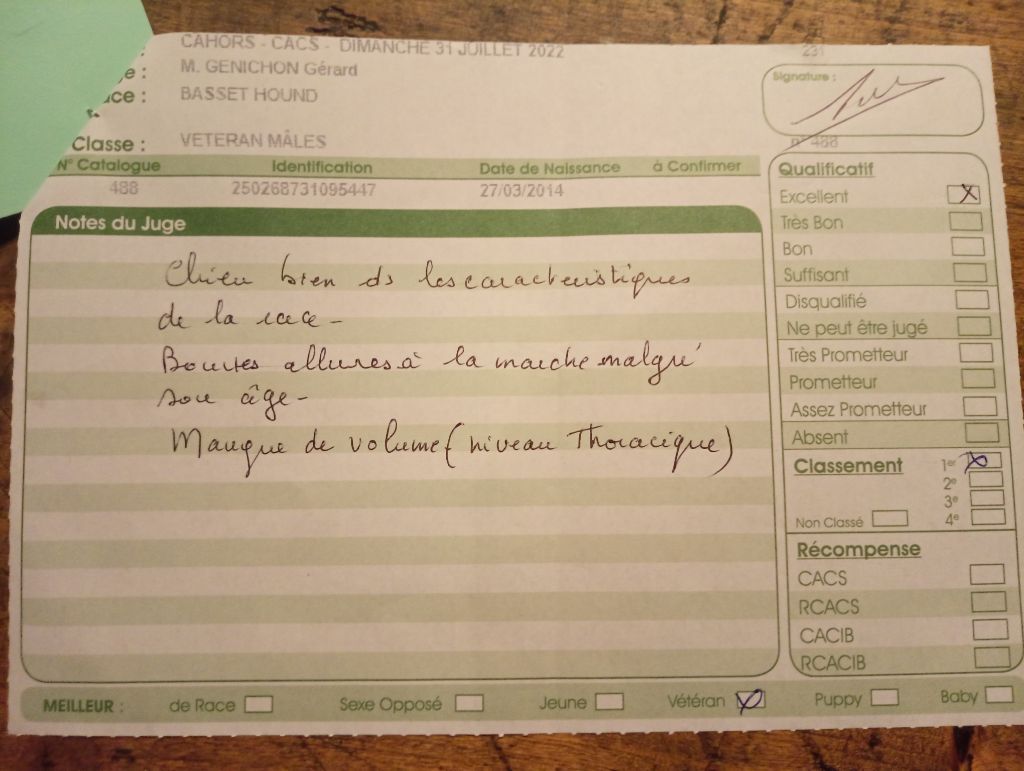 CAHORS - CACS - DIMANCHE 31 JUILLET 2022 231
e : M. GENICHON Gérard
ace : BASSET HOUND
Signature :
Classe : VETERAN MÂLES
n° 488
N° Catalogue Identification Date de Naissance à Confirmer
488 250268731095447 27/03/2014
Notes du Juge
Chien bien ds les caracteristiques
de la race -
Bonnes allures à la marche malgré
son âge -
Manque de volume ( niveau Thoracique )
Qualificatif
Excellent X
Très Bon
Bon
Suffisant
Disqualifié
Ne peut être jugé
Très Prometteur
Prometteur
Assez Prometteur
Absent
Classement 1er X
2e
3e
Non Classé 4e
Récompense
CACS
RCACS
CACIB
RCACIB
MEILLEUR : de Race Sexe Opposé Jeune Vétéran X Puppy Baby